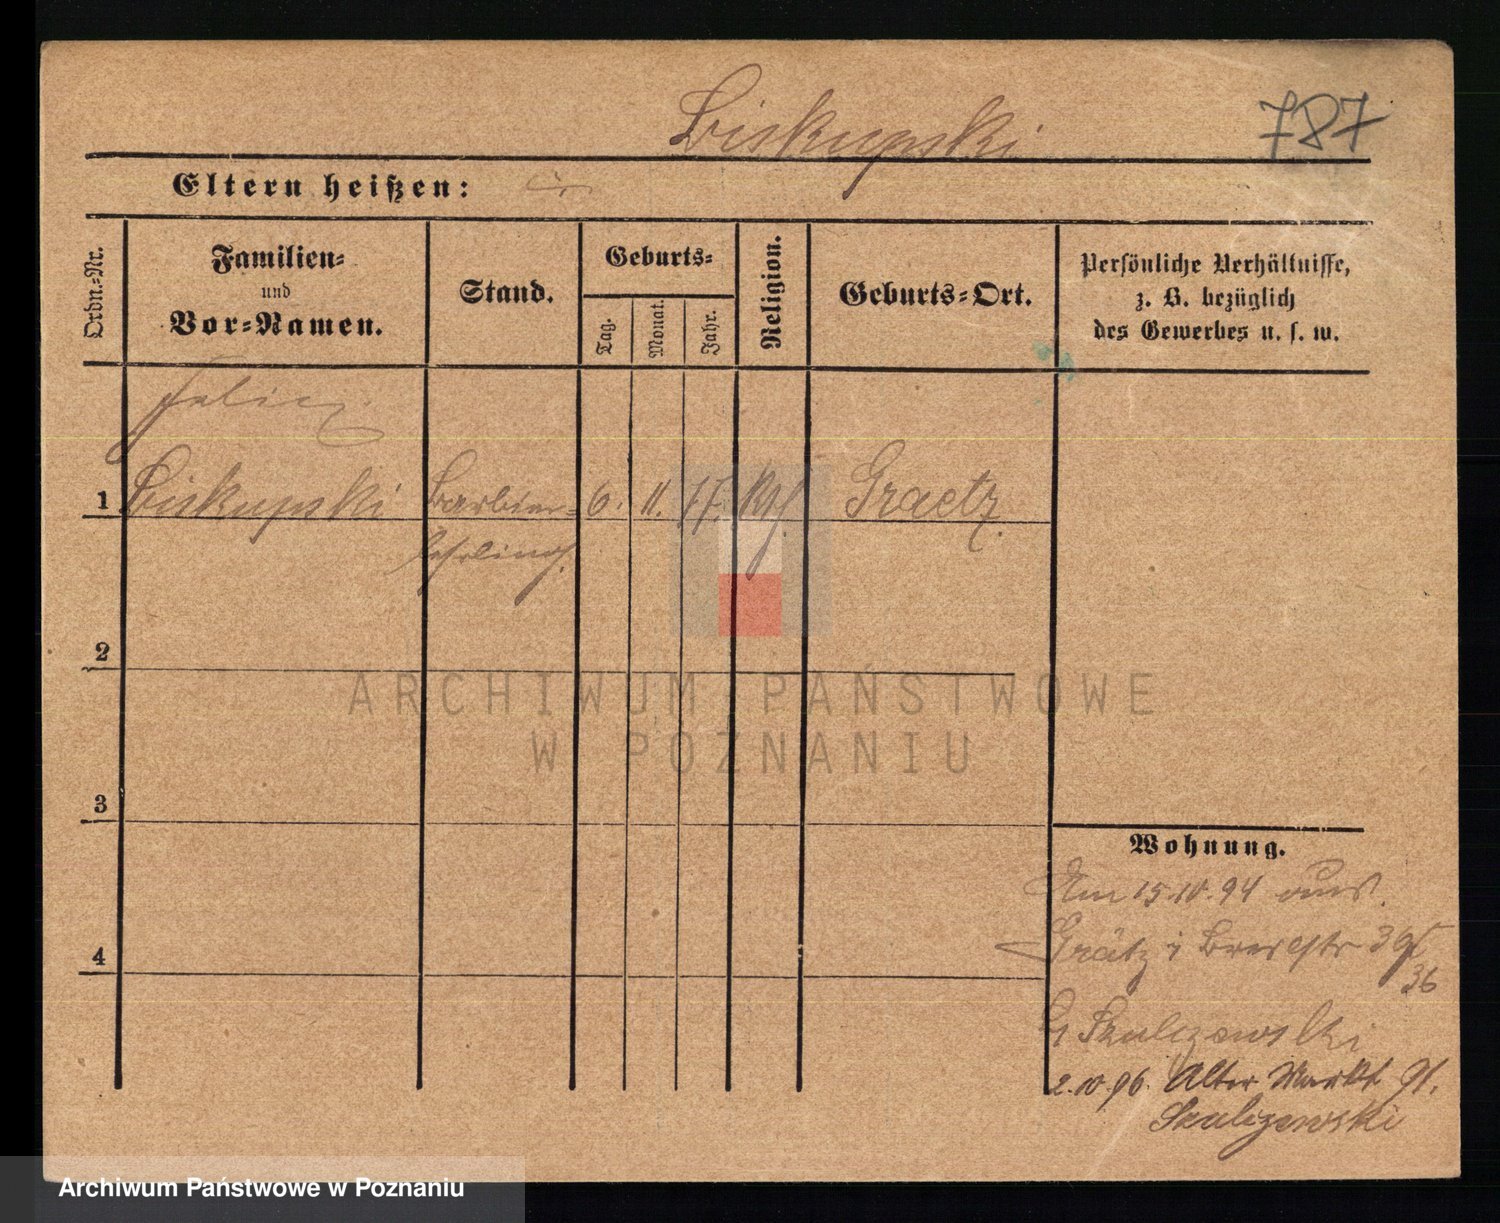 Biskupski
787
Eltern heißen:
Ordn.-Nr.
Familien-
und
Vor-Namen.
Stand.
Geburts-
Tag.
Monat.
Jahr.
Religion.
Geburts-Ort.
Persönliche Verhältnisse,
z. B. bezüglich
des Gewerbes u. s. w.
1
Biskupski
Barbier-
lehrling.
6.
11.
77.
kth.
Graetz.
2
3
4
Wohnung.
Am 15.10.94 aus
Grätz
36
Szulczewski
2.10.96. Alter Markt 91.
Szulczewski
ARCHIWUM PAŃSTWOWE
W POZNANIU
Archiwum Państwowe w Poznaniu